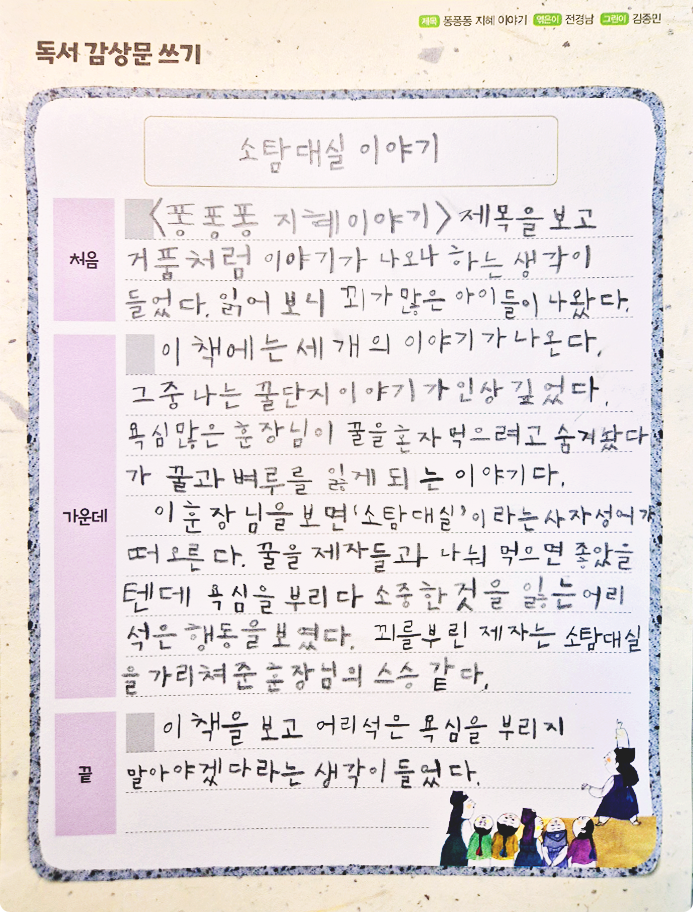 제목 퐁퐁퐁 지혜 이야기 엮은이 전경남 그린이 김종민
독서 감상문 쓰기
소탐대실 이야기
처음
<퐁퐁퐁 지혜이야기> 제목을 보고
거품처럼 이야기가 나오나 하는 생각이
들었다. 읽어 보니 꾀가 많은 아이들이 나왔다.
가운데
이 책에는 세 개의 이야기가 나온다.
그중 나는 꿀단지 이야기가 인상 깊었다.
욕심많은 훈장님이 꿀을 혼자 먹으려고 숨겨놨다
가 꿀과 벼루를 잃게 되는 이야기다.
이 훈장님을 보면 '소탐대실'이라는 사자성어가
떠오른다. 꿀을 제자들과 나눠 먹으면 좋았을
텐데 욕심을 부리다 소중한 것을 잃는 어리
석은 행동을 보였다. 꾀를 부린 제자는 소탐대실
을 가리쳐준 훈장님의 스승 같다.
끝
이 책을 보고 어리석은 욕심을 부리지
말아야겠다라는 생각이 들었다.